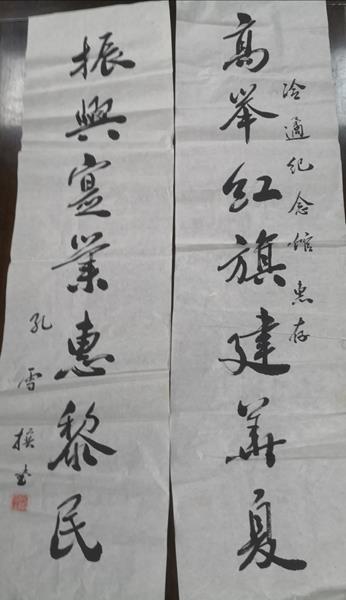 冷遹纪念馆惠存
高举红旗建华夏
振兴实业惠黎民
孔雪撰书